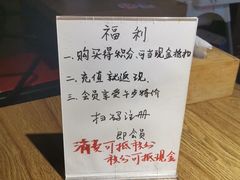 福利
一、购买得积分,可当现金抵扣
二、充值就返现.
三、会员享受千步特价
扫码注册
即会员
消费可抵积分
积分可抵现金